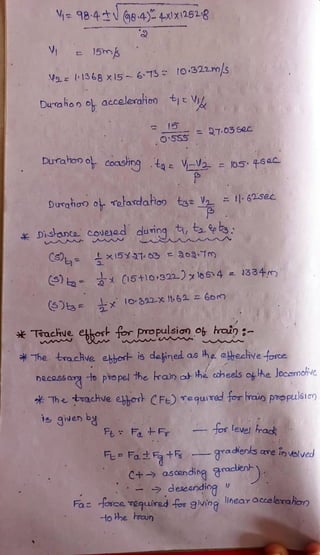 V1 = 98.4 ± √(98.4)² - 4x1x1252.8
2
V1 = 15m/s
V2 = 1.1368 x 15 - 6.73 = 10.322m/s
Duration of acceleration t1 = V1/α
= 15/0.555 = 27.03 sec
Duration of coasting t2 = V1-V2/β = 105.4 sec
Duration of retardation t3 = V2/β = 11.62 sec
* Distance covered during t1, t2 & t3:
(S)t1 = 1/2 x 15 x 27.03 = 202.7m
(S)t2 = 1/2 x (15+10.322) x 105.4 = 1334m
(S)t3 = 1/2 x 10.322 x 11.62 = 60m
* Tractive effort for propulsion of train :-
* The tractive effort is defined as the effective force
necessary to propel the train at the wheels of the locomotive
* The tractive effort (Ft) required for train propulsion
is given by
Ft = Fa + Fr — for level track
Ft = Fa ± Fg + Fr — gradients are involved
(+ → ascending gradient)
- → descending "
Fa = force required for giving linear acceleration
to the train